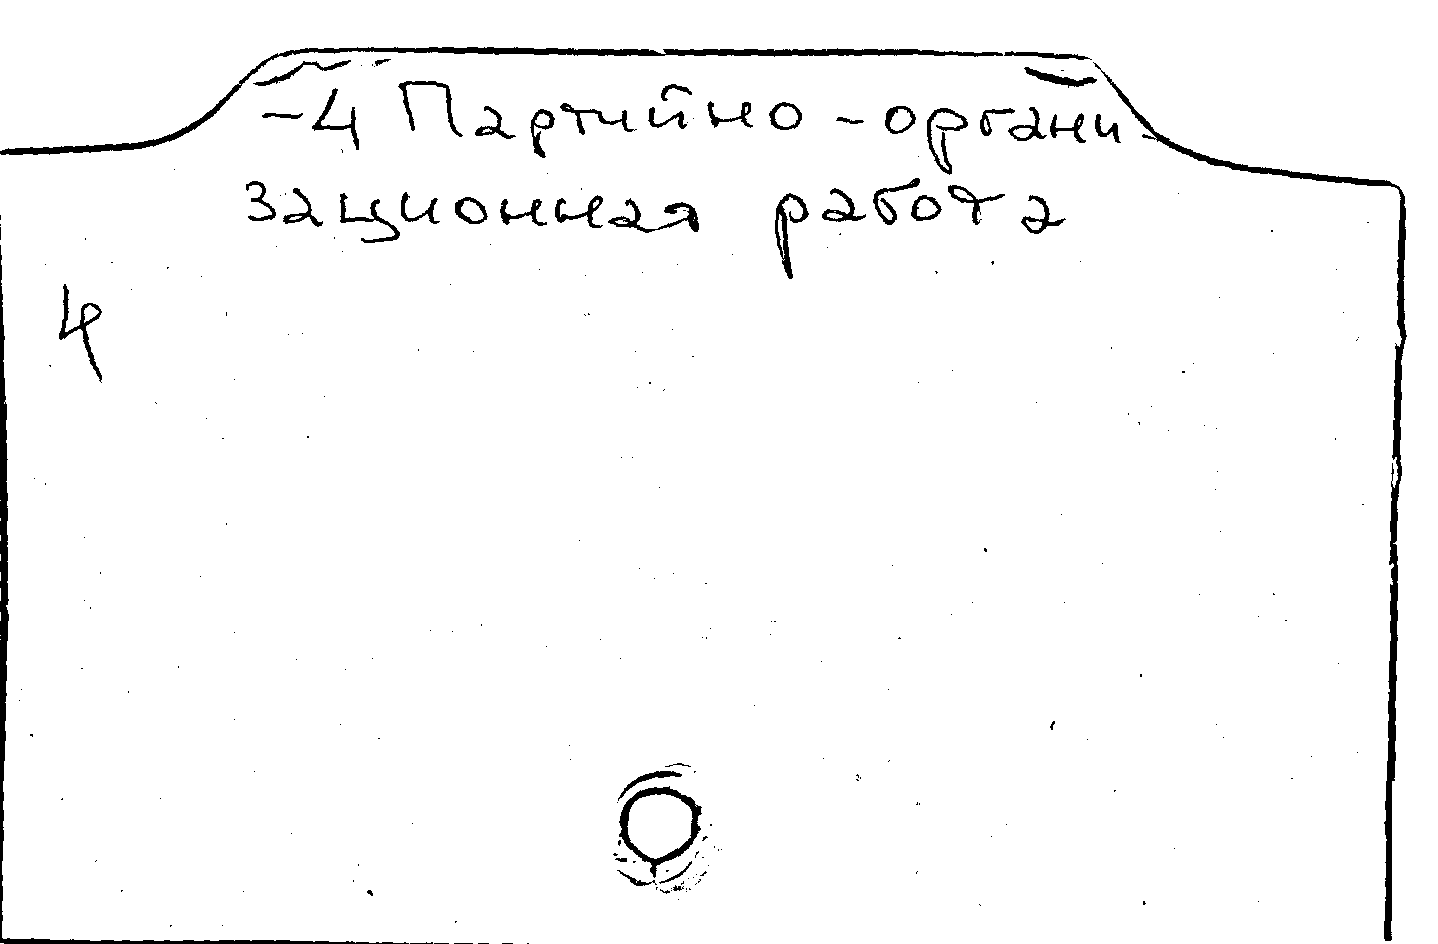 -4 Партийно-органи-
зационная работа
4